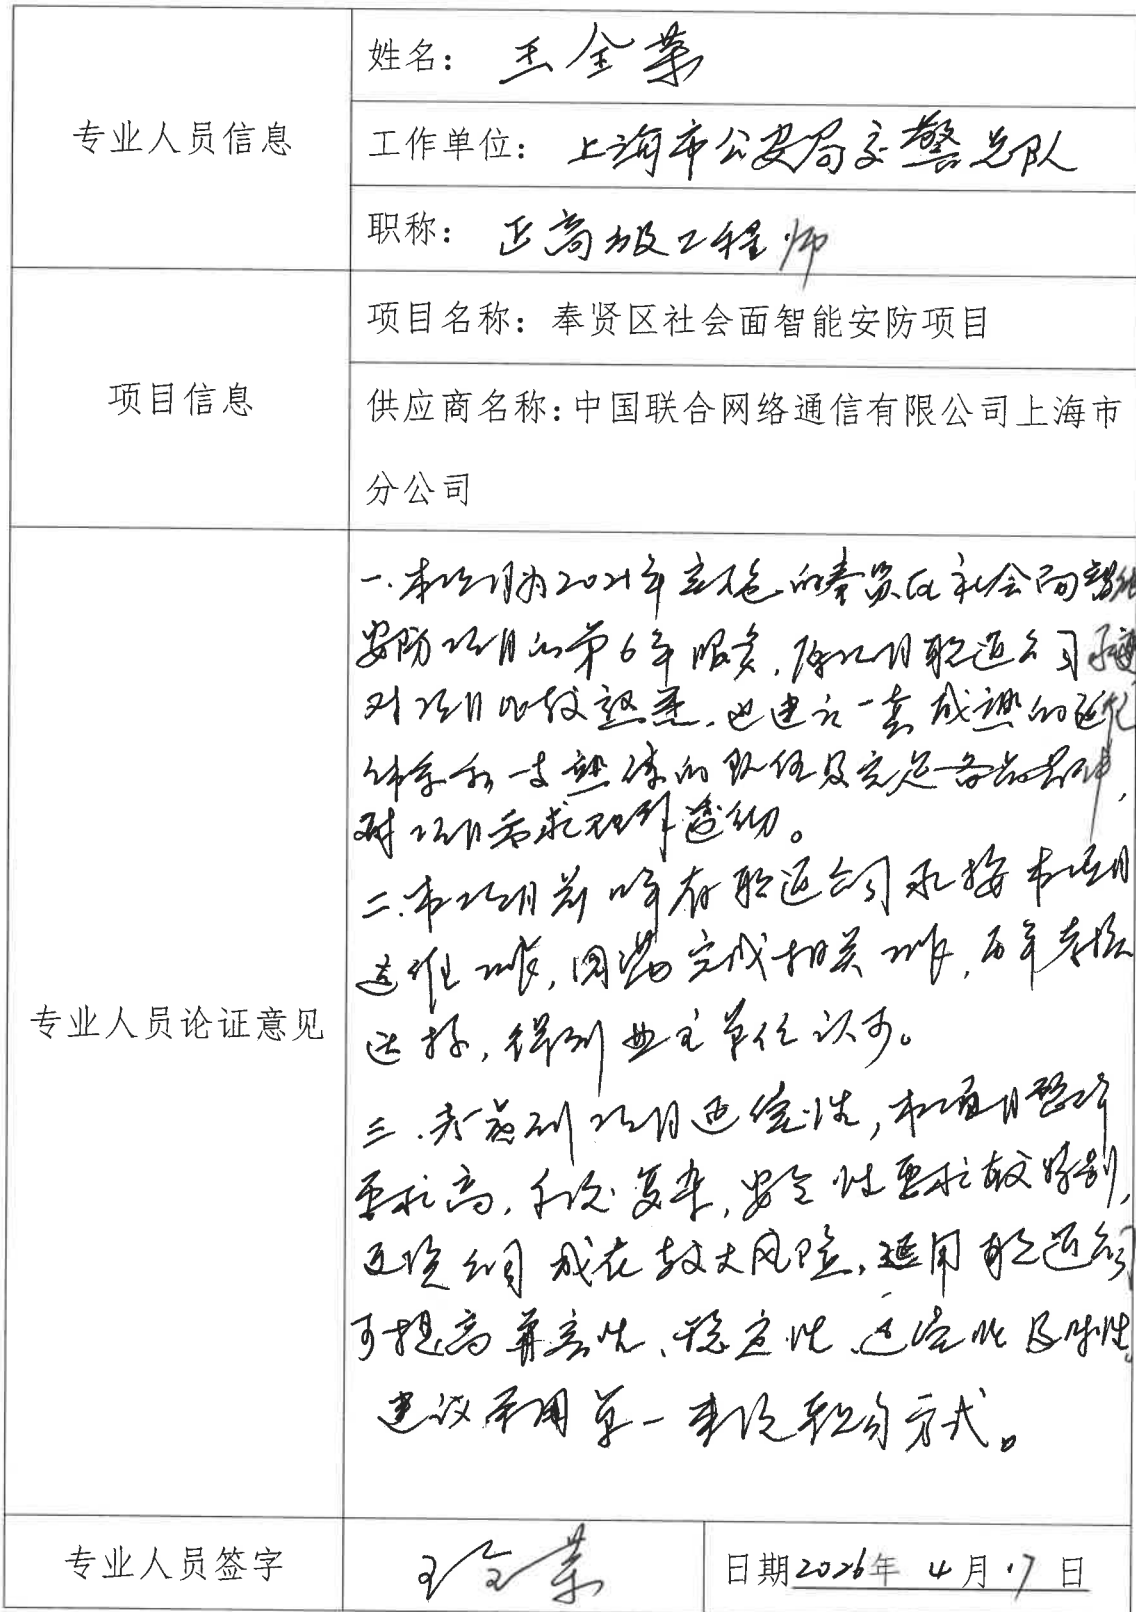 专业人员信息
姓名：王金荣
工作单位：上海市公安局交警总队
职称：正高级工程师
项目信息
项目名称：奉贤区社会面智能安防项目
供应商名称：中国联合网络通信有限公司上海市
分公司
专业人员论证意见
一.本项目为2021年实施的奉贤区社会面智能
安防项目的第6年服务，原项目联通公司
对项目比较熟悉，也建立一套成熟的运维
体系和一支熟练的队伍及充足备品备件，
对项目需求理解透彻。
二.本项目前 有联通公司承接本项目
运维工作，圆满完成相关工作，历年考核
达标，得到业主单位认可。
三.考虑到项目延续性，本项目
要求高，复杂，安全性要求较特别，
存在较大风险，联通公司
可提高兼容性、稳定性、连续性及时性，
建议采用单一来源采购方式。
专业人员签字
王金荣
日期2026年4月17日